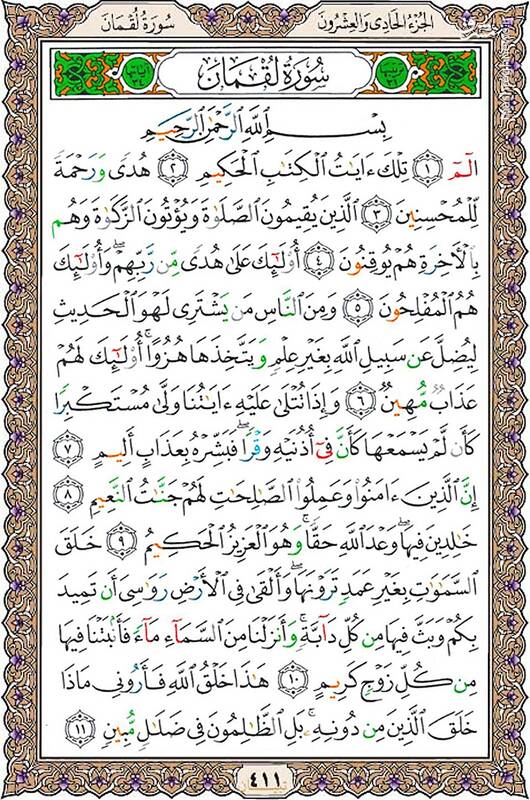 الجزء الحادى والعشرون
سورة لقمان
سُورَةُ لُقْمَانَ
بِسْمِ ٱللَّهِ ٱلرَّحْمَٰنِ ٱلرَّحِيمِ
الٓمٓ ١ تِلْكَ ءَايَٰتُ ٱلْكِتَٰبِ ٱلْحَكِيمِ ٢ هُدًى وَرَحْمَةً
لِّلْمُحْسِنِينَ ٣ ٱلَّذِينَ يُقِيمُونَ ٱلصَّلَوٰةَ وَيُؤْتُونَ ٱلزَّكَوٰةَ وَهُم
بِٱلْءَاخِرَةِ هُمْ يُوقِنُونَ ٤ أُو۟لَٰٓئِكَ عَلَىٰ هُدًى مِّن رَّبِّهِمْ ۖ وَأُو۟لَٰٓئِكَ
هُمُ ٱلْمُفْلِحُونَ ٥ وَمِنَ ٱلنَّاسِ مَن يَشْتَرِى لَهْوَ ٱلْحَدِيثِ
لِيُضِلَّ عَن سَبِيلِ ٱللَّهِ بِغَيْرِ عِلْمٍ وَيَتَّخِذَهَا هُزُوًا ۚ أُو۟لَٰٓئِكَ لَهُمْ
عَذَابٌ مُّهِينٌ ٦ وَإِذَا تُتْلَىٰ عَلَيْهِ ءَايَٰتُنَا وَلَّىٰ مُسْتَكْبِرًا
كَأَن لَّمْ يَسْمَعْهَا كَأَنَّ فِىٓ أُذُنَيْهِ وَقْرًا ۖ فَبَشِّرْهُ بِعَذَابٍ أَلِيمٍ ٧
إِنَّ ٱلَّذِينَ ءَامَنُوا۟ وَعَمِلُوا۟ ٱلصَّٰلِحَٰتِ لَهُمْ جَنَّٰتُ ٱلنَّعِيمِ ٨
خَٰلِدِينَ فِيهَا ۖ وَعْدَ ٱللَّهِ حَقًّا ۚ وَهُوَ ٱلْعَزِيزُ ٱلْحَكِيمُ ٩ خَلَقَ
ٱلسَّمَٰوَٰتِ بِغَيْرِ عَمَدٍ تَرَوْنَهَا ۖ وَأَلْقَىٰ فِى ٱلْأَرْضِ رَوَٰسِىَ أَن تَمِيدَ
بِكُمْ وَبَثَّ فِيهَا مِن كُلِّ دَآبَّةٍ ۚ وَأَنزَلْنَا مِنَ ٱلسَّمَآءِ مَآءً فَأَنۢبَتْنَا فِيهَا
مِن كُلِّ زَوْجٍ كَرِيمٍ ١٠ هَٰذَا خَلْقُ ٱللَّهِ فَأَرُونِى مَاذَا
خَلَقَ ٱلَّذِينَ مِن دُونِهِۦ ۚ بَلِ ٱلظَّٰلِمُونَ فِى ضَلَٰلٍ مُّبِينٍ ١١
٤١١